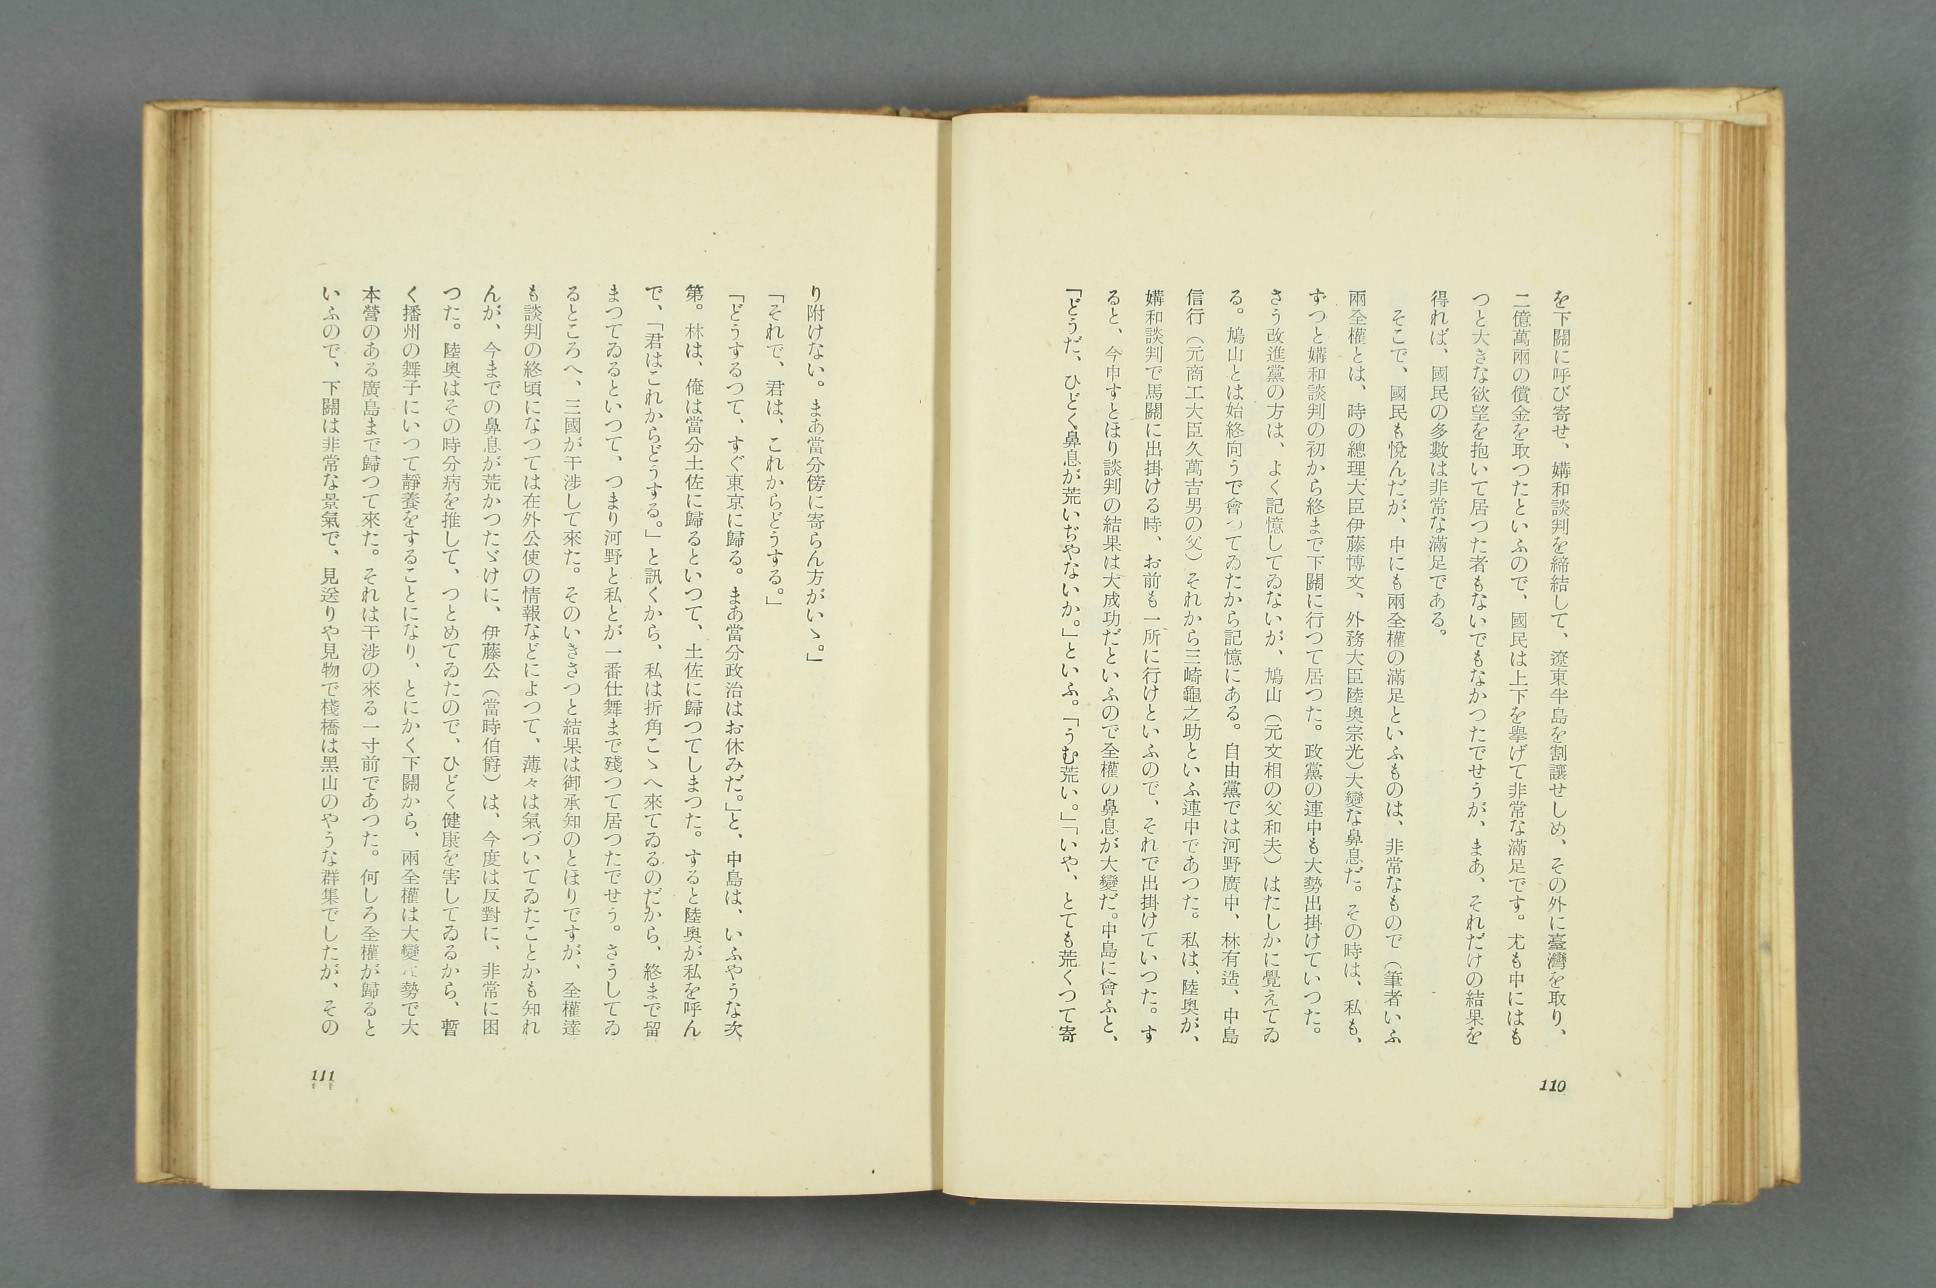 を下關に呼び寄せ、媾和談判を締結して、遼東半島を割讓せしめ、その外に臺灣を取り、
二億萬兩の償金を取つたといふので、國民は上下を擧げて非常な滿足です。尤も中にはも
つと大きな欲望を抱いて居つた者もないでもなかつたでせうが、まあ、それだけの結果を
得れば、國民の多數は非常な滿足である。
そこで、國民も悅んだが、中にも兩全權の滿足といふものは、非常なもので（筆者いふ
兩全權とは、時の總理大臣伊藤博文、外務大臣陸奧宗光）大變な鼻息だ。その時は、私も、
ずつと媾和談判の初から終まで下關に行つて居つた。政黨の連中も大勢出掛けていつた。
さう改進黨の方は、よく記憶してゐないが、鳩山（元文相の父和夫）はたしかに覺えてゐ
る。鳩山とは始終向うで會つてゐたから記憶にある。自由黨では河野廣中、林有造、中島
信行（元商工大臣久萬吉男の父）それから三崎龜之助といふ連中であつた。私は、陸奧が、
媾和談判で馬關に出掛ける時、お前も一所に行けといふので、それで出掛けていつた。す
ると、今申すとほり談判の結果は大成功だといふので全權の鼻息が大變だ。中島に會ふと、
「どうだ、ひどく鼻息が荒いぢやないか。」といふ。「うむ荒い。」「いや、とても荒くつて寄
110
り附けない。まあ當分傍に寄らん方がいゝ。」
「それで、君は、これからどうする。」
「どうするつて、すぐ東京に歸る。まあ當分政治はお休みだ。」と、中島は、いふやうな次
第。林は、俺は當分土佐に歸るといつて、土佐に歸つてしまつた。すると陸奧が私を呼ん
で、「君はこれからどうする。」と訊くから、私は折角こゝへ來てゐるのだから、終まで留
まつてゐるといつて、つまり河野と私とが一番仕舞まで殘つて居つたでせう。さうしてゐ
るところへ、三國が干涉して來た。そのいきさつと結果は御承知のとほりですが、全權達
も談判の終頃になつては在外公使の情報などによつて、薄々は氣づいてゐたことかも知れ
んが、今までの鼻息が荒かつたゞけに、伊藤公（當時伯爵）は、今度は反對に、非常に困
つた。陸奧はその時分病を推して、つとめてゐたので、ひどく健康を害してゐるから、暫
く播州の舞子にいつて靜養をすることになり、とにかく下關から、兩全權は大變な勢で大
本營のある廣島まで歸つて來た。それは干涉の來る一寸前であつた。何しろ全權が歸ると
いふので、下關は非常な景氣で、見送りや見物で棧橋は黑山のやうな群集でしたが、その
111